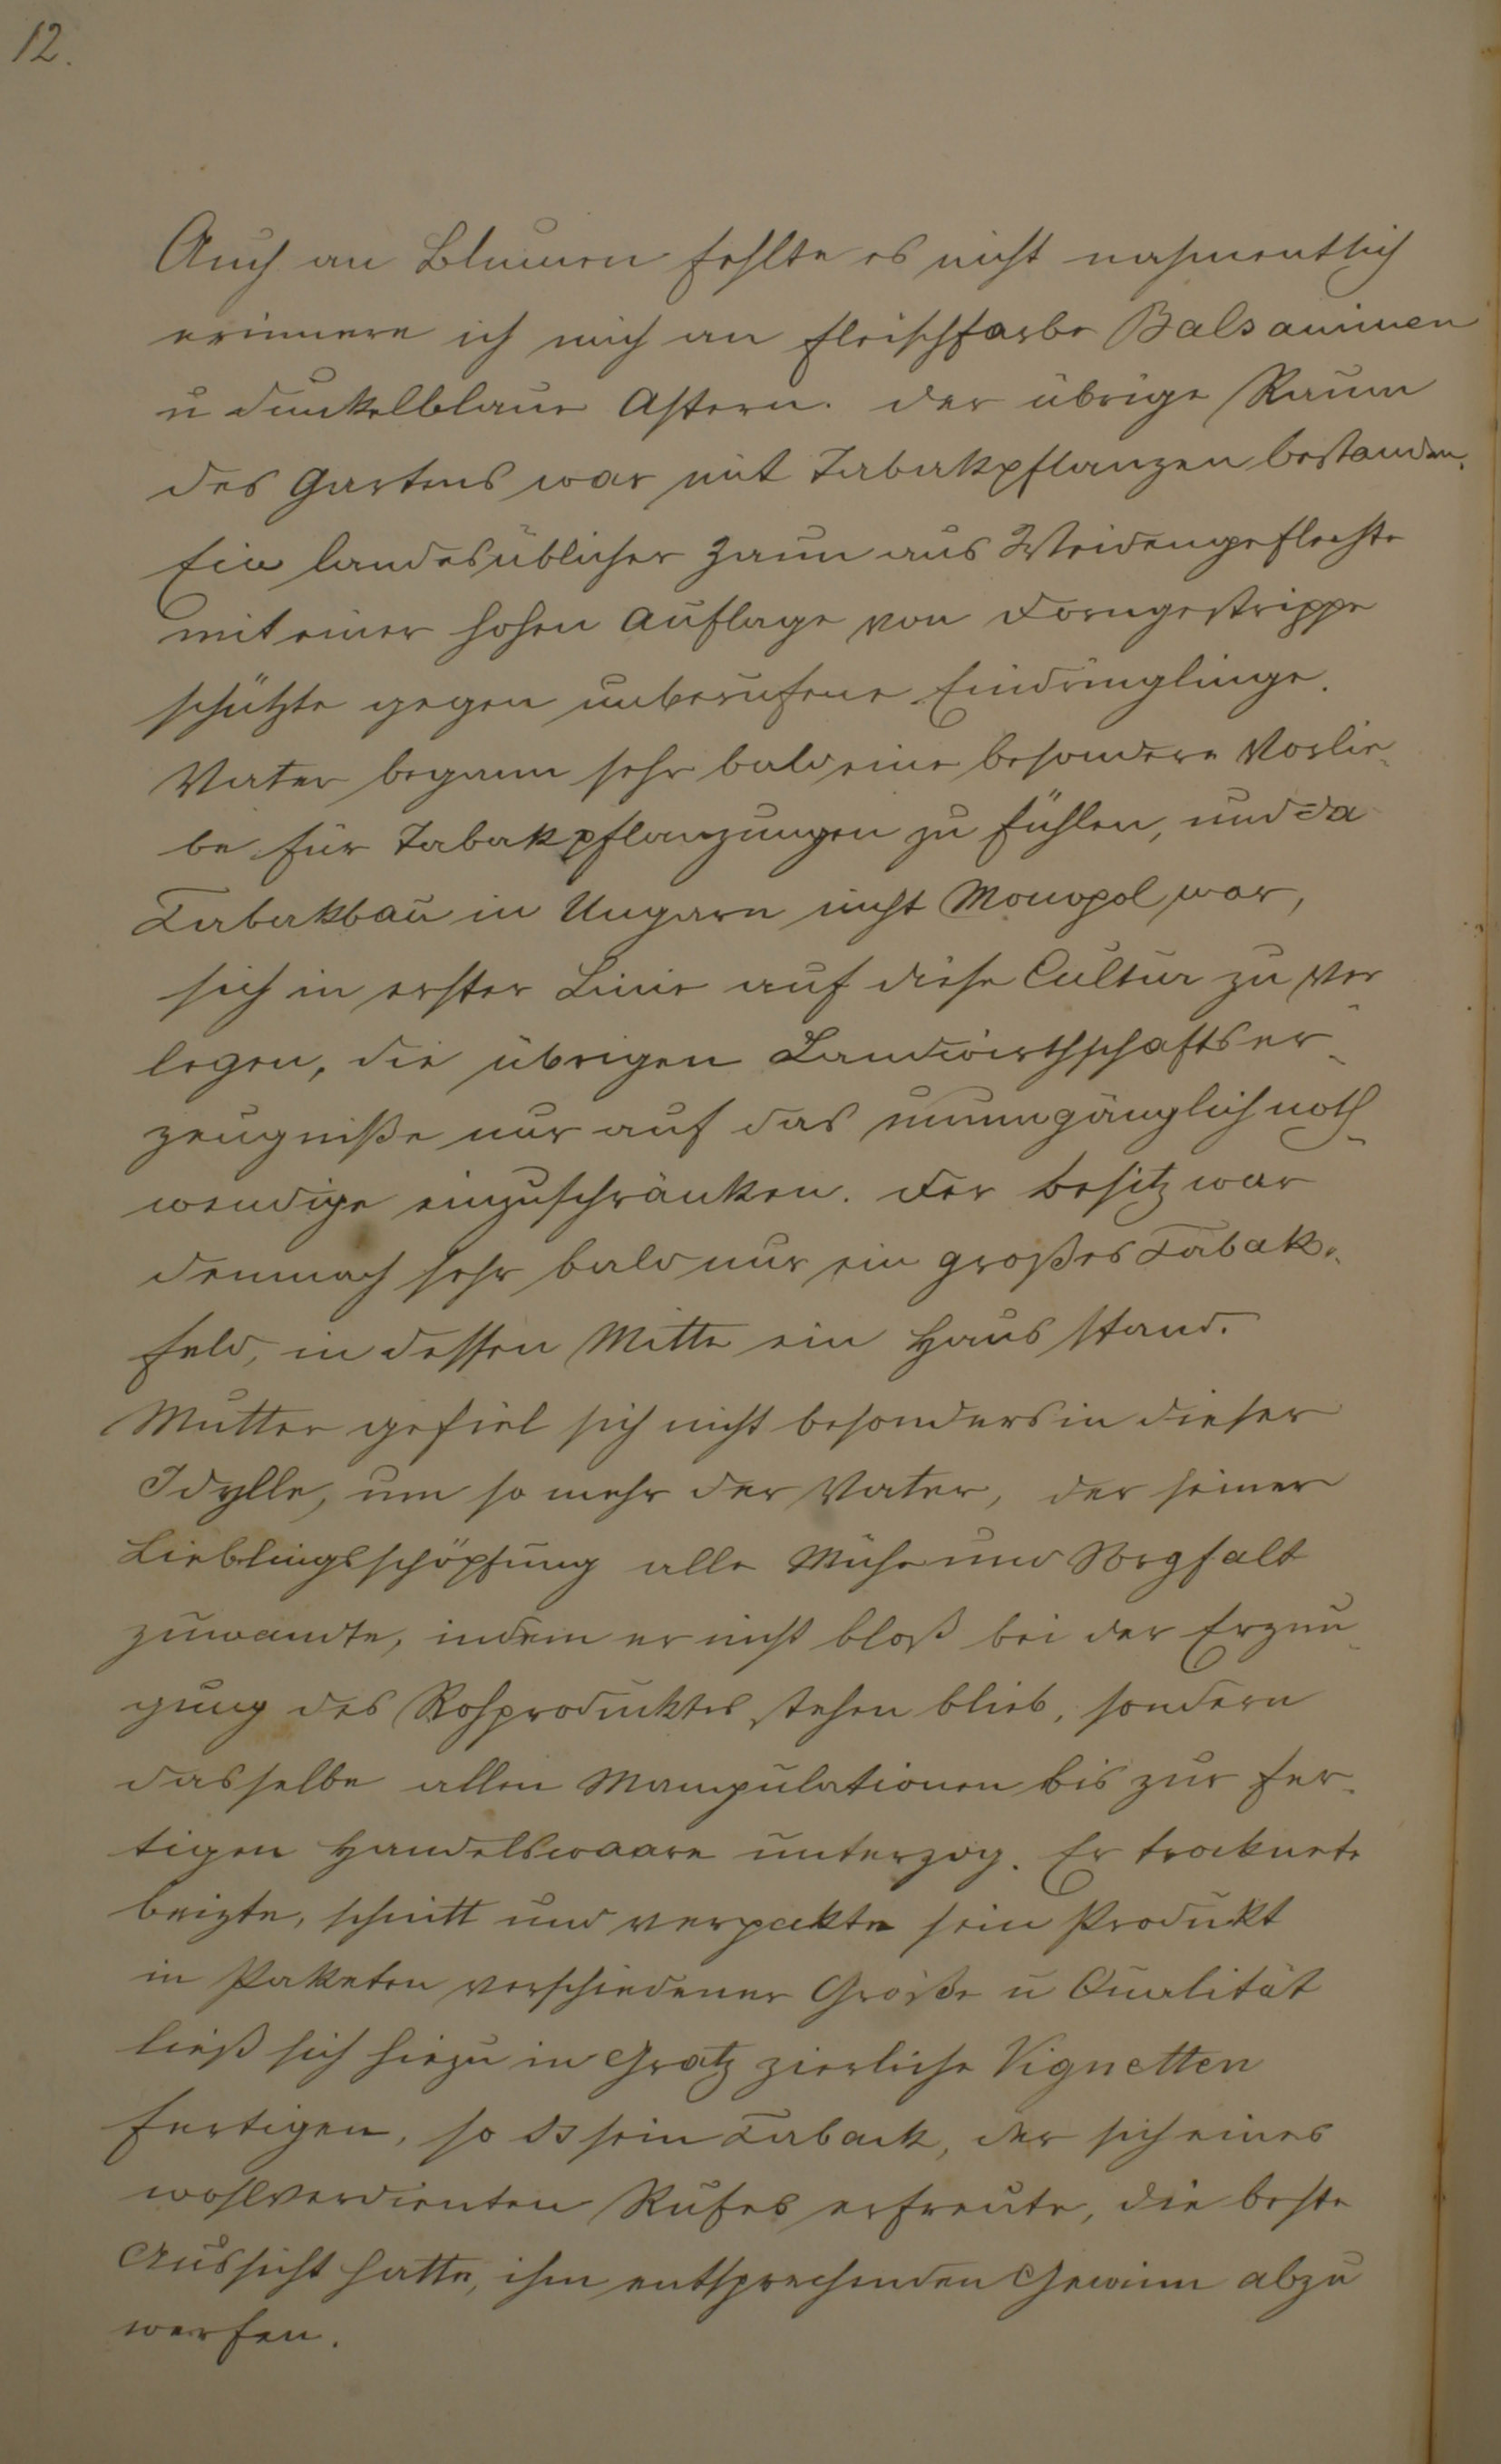 12.
Auch an Blumen fehlte es nicht nahmentlich
erinnere ich mich an fleischfarbe Balsaminen
u dunkelblaue Astern. der übrige Raum
des Gartens war mit Tabakpflanzen bestanden.
Ein landesüblicher Zaun aus Weidengeflechte
mit einer hohen Auflage von Dorngestrippe
schützte gegen unberufene Eindringlinge.
Vater begann sehr bald eine besondere Vorlie-
be für Tabakpflanzungen zu fühlen, und da
Tabakbau in Ungarn nicht Monopol war,
sich in erster Linie auf diese Cultur zu ver-
legen, die übrigen Landwirthschaftser-
zeugniße nur auf das unumgänglich noth-
wendige einzuschränken. Der Besitz war
demnach sehr bald nur ein großes Tabak-
feld, in dessen Mitte ein Haus stand.
Mutter gefiel sich nicht besonders in dieser
Idylle, um so mehr der Vater, der seiner
Lieblingsschöpfung alle Mühe und Sorgfalt
zuwandte, indem er nicht bloß bei der Erzeu-
gung des Rohproduktes stehen blieb, sondern
dasselbe allen Manipulationen bis zur fer-
tigen Handelswaare unterzog. Er trocknete
beizte, schnitt und verpakte sein Produkt
in Paketen verschiedener Größe u Qualität
ließ sich hiezu in Gratz zierliche Vignetten
fertigen, so ds sein Taback, der sich eines
wohlverdienten Rufes erfreute, die beste
Aussicht hatte, ihm entsprechenden Gewinn abzu
werfen.